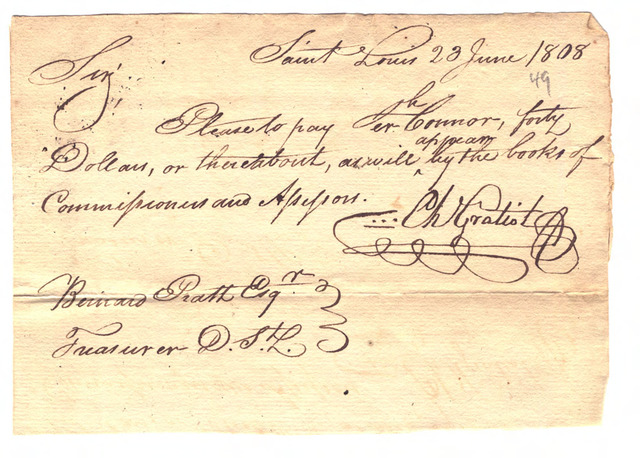 Saint Louis 23 June 1808
49
Sir,
Please to pay Jerh Connor, forty
Dollars, or thereabout, as will appear by the books of
Commissioners and Assessors.
Ch Gratiot
Bernard Pratt Esqr
Treasurer D. St. L.